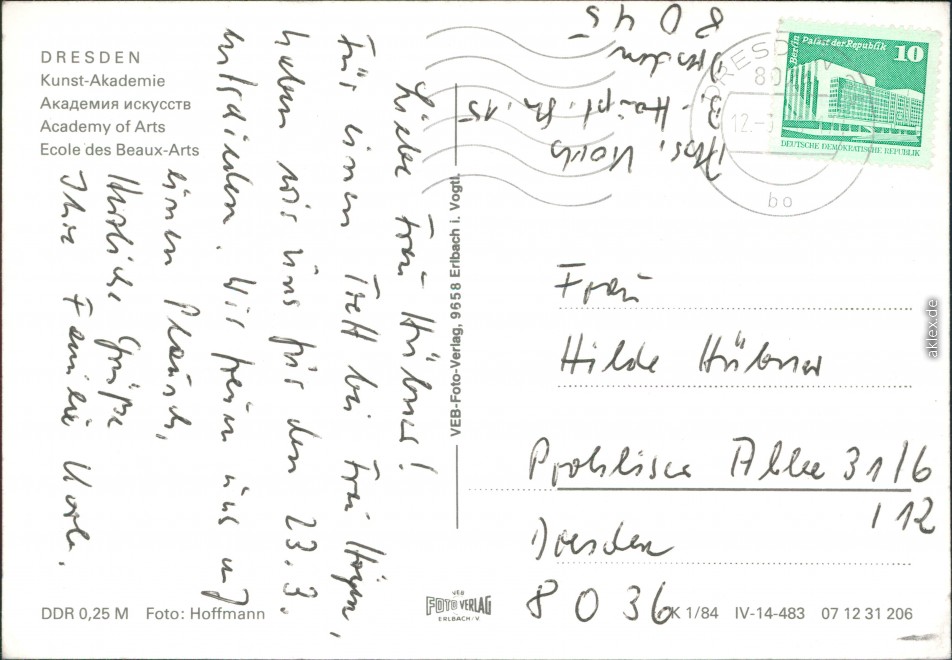 DRESDEN
Kunst-Akademie
Академия искусств
Academy of Arts
Ecole des Beaux-Arts
Liebe Frau Hübner!
Für einen Treff bei Frau
haben wir uns für den 23.3.
entschieden. Wir freun uns auf
einen Plausch,
Herzliche Grüße
Ihre Familie
VEB-Foto-Verlag, 9658 Erlbach i. Vogtl.
Abs.
B. - Haupt. Str. 15
Dresden
8045
DRESDEN
80
12.-
bo
Berlin Palast der Republik
10
DEUTSCHE DEMOKRATISCHE REPUBLIK
Frau
Hilde Hübner
Prohliser Allee 31/6
/12
Dresden
8036
DDR 0,25 M Foto: Hoffmann
VEB
FOTO VERLAG
ERLBACH/V
K 1/84 IV-14-483 07 12 31 206
aklex.de